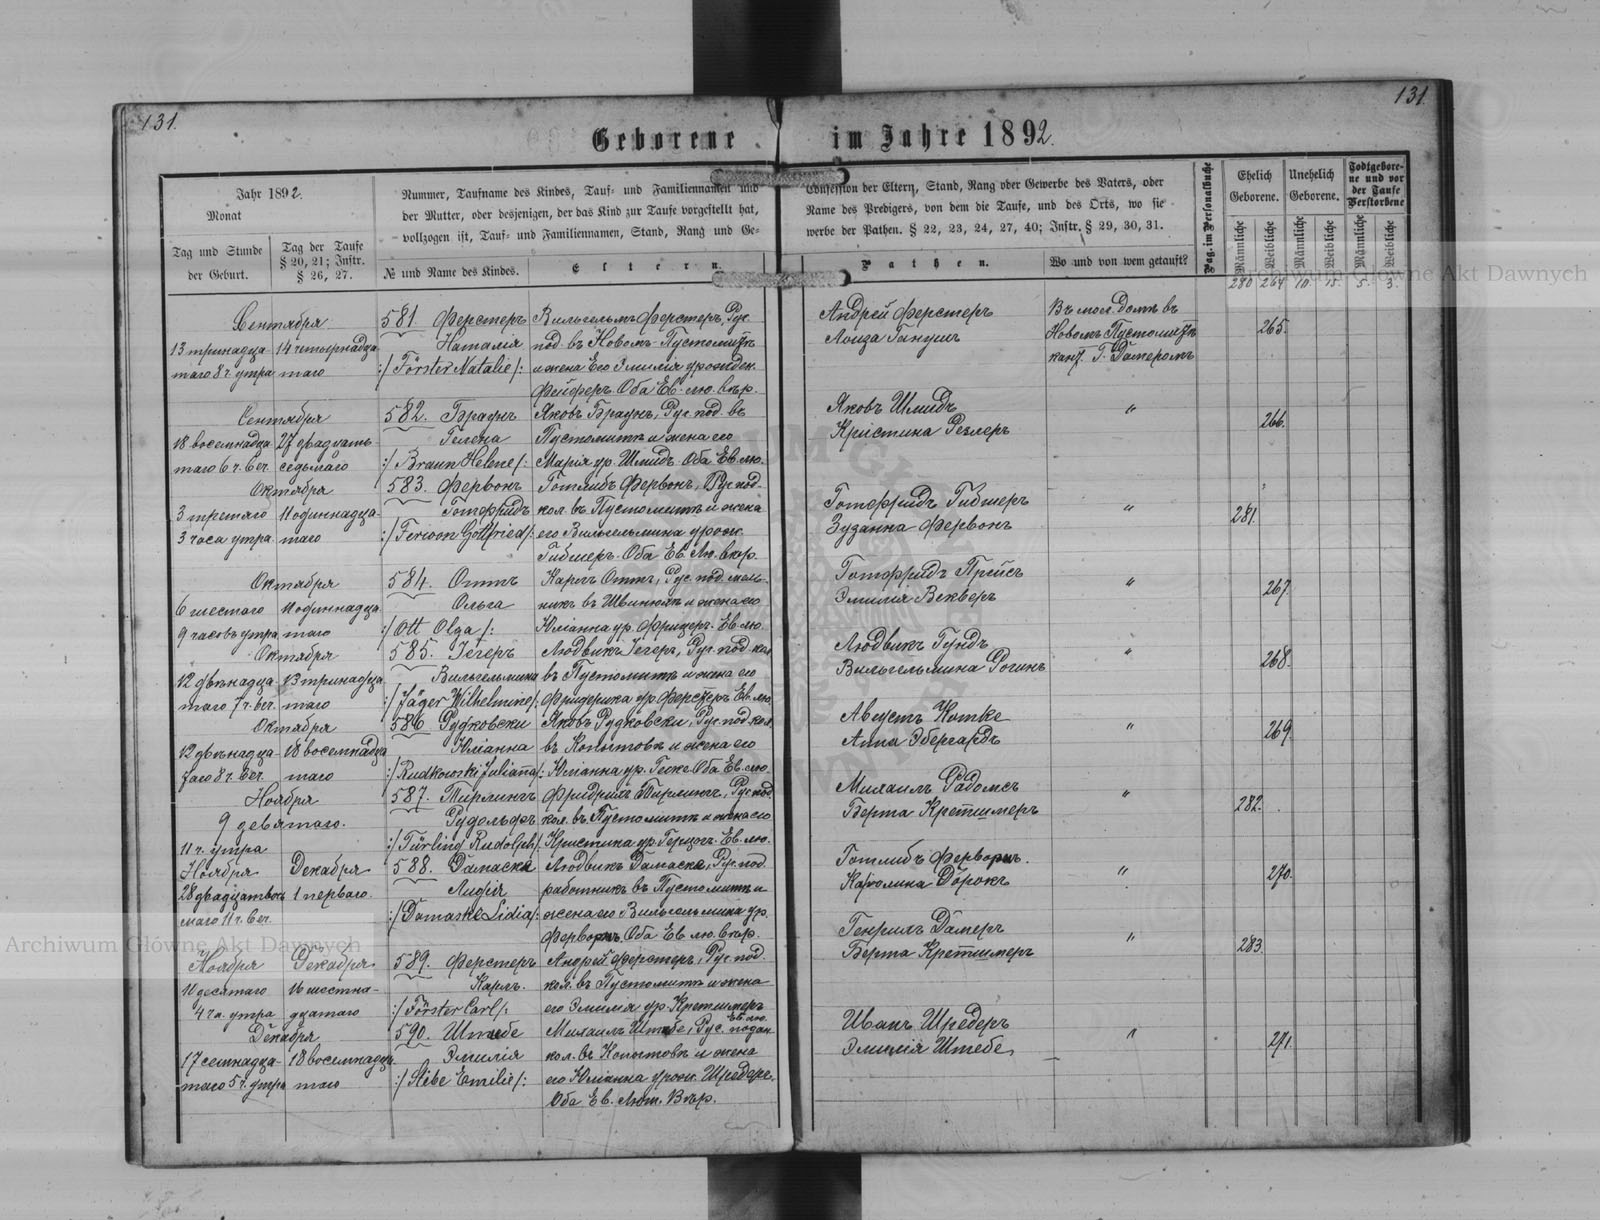 131.
131.
Geborene im Jahre 1892.
Jahr 1892.
Monat
Tag und Stunde
der Geburt.
Tag der Taufe
§ 20, 21; Instr.
§ 26, 27.
Nummer, Taufname des Kindes, Tauf- und Familiennamen und
der Mutter, oder desjenigen, der das Kind zur Taufe vorgestellt hat,
vollzogen ist, Tauf- und Familiennamen, Stand, Rang und Ge-
№ und Name des Kindes.
Eltern.
Confession der Eltern, Stand, Rang oder Gewerbe des Vaters, oder
Name des Predigers, von dem die Taufe, und des Orts, wo sie
werbe der Pathen. § 22, 23, 24, 27, 40; Instr. § 29, 30, 31.
Pathen.
Wo und von wem getauft?
Pag. im Personalbuche
Ehelich
Geborene.
Unehelich
Geborene.
Todtgebore-
ne und vor
der Taufe
Verstorbene
Männliche
Weibliche
Männliche
Weibliche
Männliche
Weibliche
280 264 10. 15. 5. 3.
Сентября
13 тринадца
таго 8 ч. утра
14 четырнадца
таго
581 Ферстеръ
Наталія
:/ Förster Natalie /:
Вильгельмъ Ферстеръ, Рус.
под. въ Новомъ-Пустомитѣ
и жена Его Эмилія урожден.
Фейферъ. Оба Ев. лю. вѣр.
Андрей Ферстеръ
Луиза Ганушъ
Въ мол. домѣ въ
Новомъ Пустомитѣ
кант. Г. Дамеромъ
265.
Сентября
18 восемнадца
таго 6 ч. веч.
27 двадцать
седьмаго
582. Браунъ
Гелена
:/ Braun Helene /:
Яковъ Браунъ, Рус. под. въ
Пустомитѣ и жена его
Марія ур. Шмидъ. Оба Ев. лю.
Яковъ Шмидъ
Кристина Резлеръ
"
266.
Октября
3 третяго
3 часа утра
11 одиннадца-
таго
583. Фервонъ
Готфридъ
:/ Ferwon Gottfried /:
Готлибъ Фервонъ, Рус. под.
кол. въ Пустомитѣ и жена
его Вильгельмина урож.
Гибшеръ. Оба Ев. Лю. вѣр.
Готфридъ Гибшеръ
Зузанна Фервонъ
"
281.
Октября
6 шестаго
9 часовъ утра
11 одиннадца
таго
584. Оттъ
Ольга
:/ Ott Olga /:
Карлъ Оттъ, Рус. под. мель-
никъ въ Швинюхѣ и жена его
Юліанна ур. Фридеръ. Ев. лю.
Готфридъ Прейсъ
Эмилія Векверъ
"
267.
Октября
12 двѣнадца
таго 7 ч. веч.
13 тринадца
таго
585. Іегеръ
Вильгельмина
:/ Jäger Wilhelmine /:
Людвикъ Іегеръ, Рус. под. кол
въ Пустомитѣ и жена его
Фридерика ур. Ферстеръ Ев. лю.
Людвикъ Гундъ
Вильгельмина Рогинъ
"
268.
Октября
12 двѣнадца-
таго 8 ч. веч.
18 восемнадца
таго
586 Рудковски
Юліанна
:/ Rudkowski Julianna /:
Яковъ Рудковски, Рус. под. кол
въ Копытовѣ и жена его
Юліанна ур. Геске Оба Ев. лю.
Августъ Котке
Анна Эбергардъ
"
269.
Ноября
9 девятаго.
11 ч. утра
587. Тирлингъ
Рудольфъ
:/ Türling Rudolph /:
Фридрихъ Тирлингъ, Рус. под.
кол. въ Пустомитѣ и жена его
Кристина ур. Герцогъ. Ев. лю.
Михаилъ Радомсъ
Берта Кретшмеръ
"
282.
Ноября
28 двадцатвось
маго 11 ч. веч.
Декабря
1 перваго.
588. Дамаске
Лидія
:/ Damaske Lidia /:
Людвикъ Дамаске, Рус. под.
работникъ въ Пустомитѣ и
жена его Вильгельмина ур.
Фервонъ. Оба Ев. лю. вѣр.
Готлибъ Фервонъ.
Каролина Дорокъ
"
270.
Ноября
10 десятаго
4 ча. утра
Декабря
16 шестна-
дцатаго
589. Ферстеръ
Карлъ.
:/ Förster Carl /:
Андрей Ферстеръ, Рус. под.
кол. въ Пустомитѣ и жена
его Эмилія ур. Кретшмеръ
Ев. лю.
Генрихъ Дамеръ
Берта Кретшмеръ
"
283
Декабря
17 семнадца-
таго 5 ч. утра
18 восемнадца
таго
590. Штебе
Эмилія
:/ Stebe Emilie /:
Михаилъ Штебе, Рус. подан
кол. въ Копытовѣ и жена
его Юліанна урож. Шредеръ.
Оба Ев. Лют. Вѣр.
Иванъ Шредеръ
Эмилія Штебе
"
271.
Archiwum Główne Akt Dawnych
Archiwum Główne Akt Dawnych